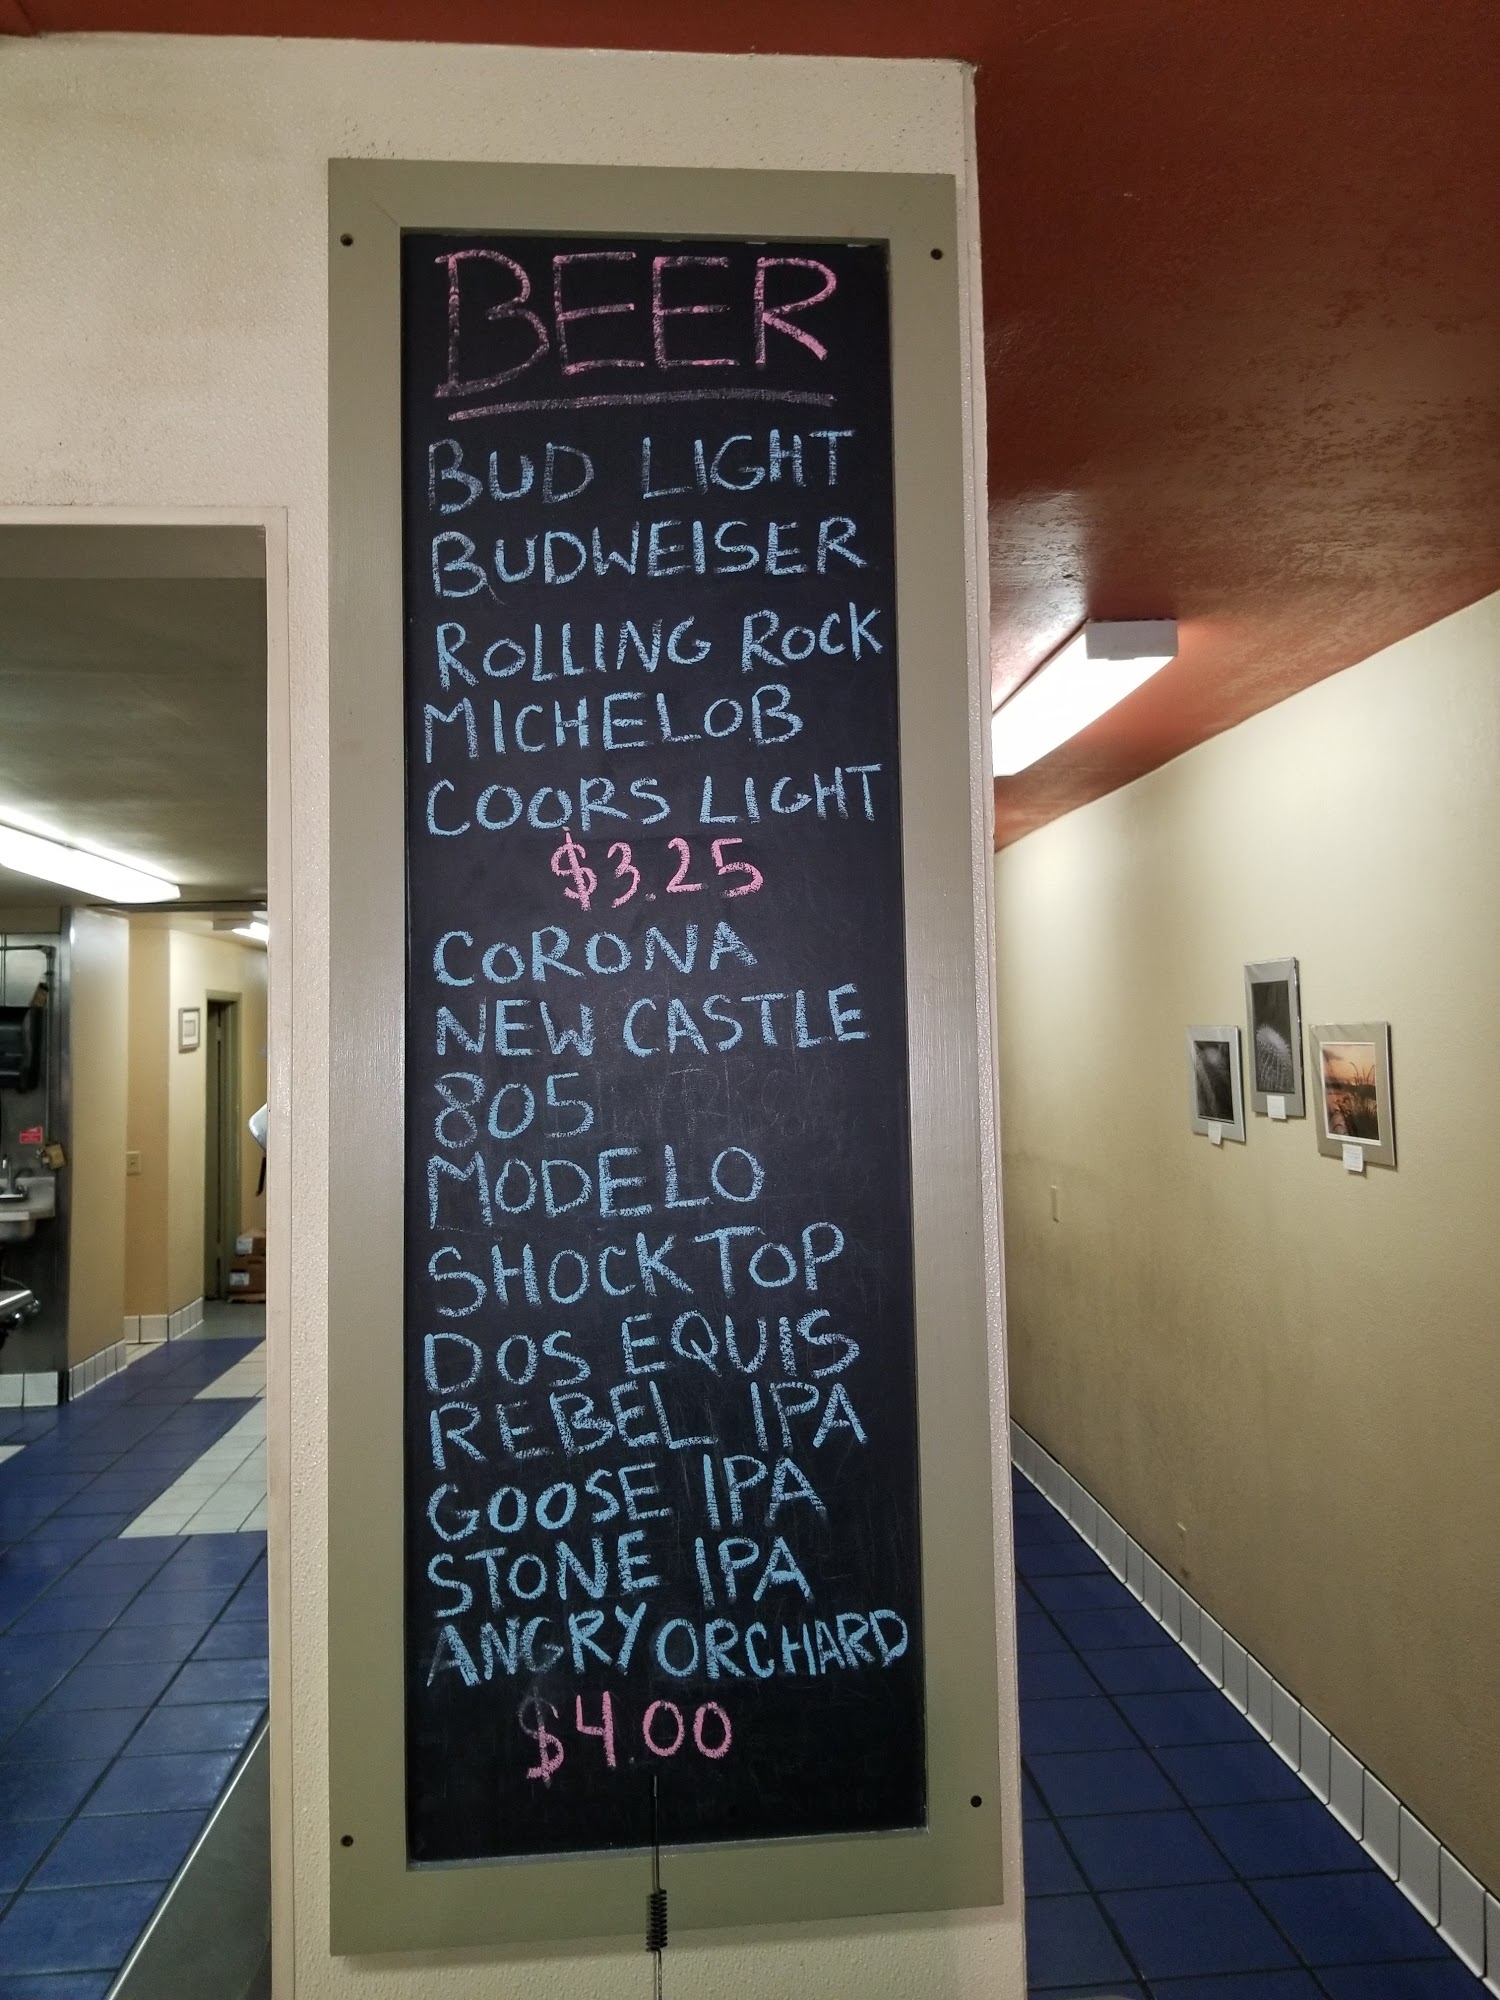 BEER
BUD LIGHT
BUDWEISER
ROLLING ROCK
MICHELOB
COORS LIGHT
$3.25
CORONA
NEW CASTLE
805
MODELO
SHOCK TOP
DOS EQUIS
REBEL IPA
GOOSE IPA
STONE IPA
ANGRY ORCHARD
$4 00